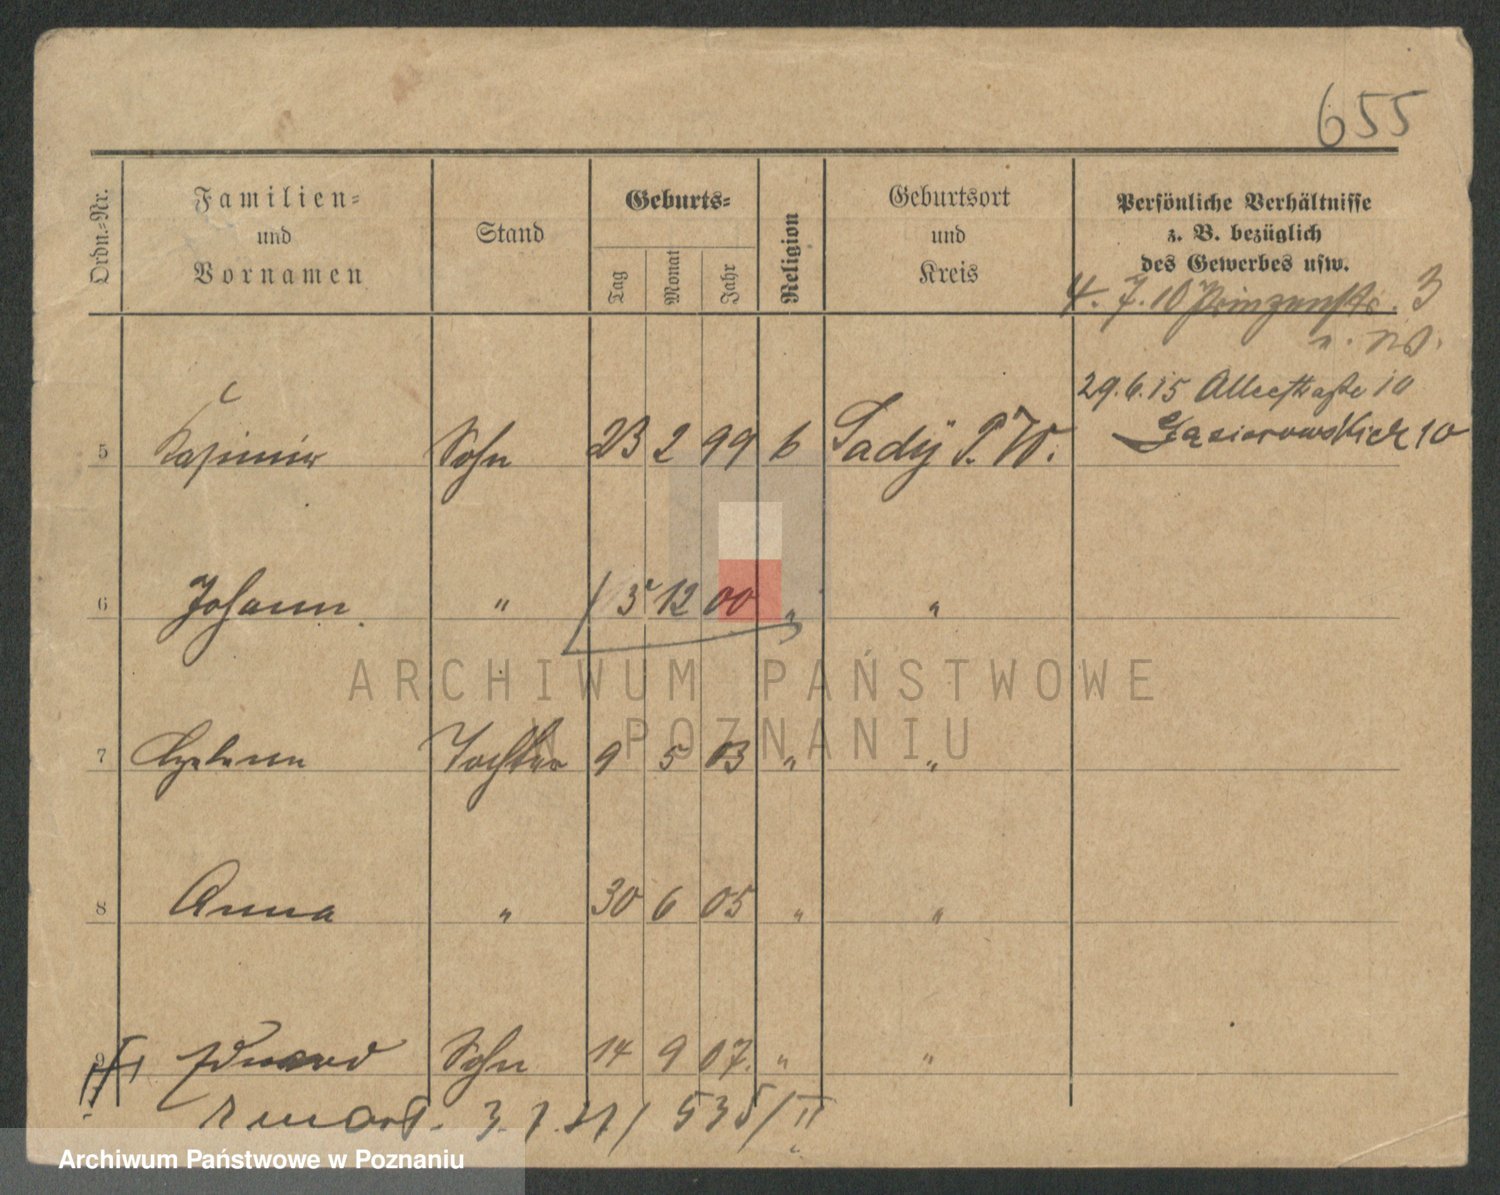 655
Ordn.-Nr.
Familien-
und
Vornamen
Stand
Geburts-
Tag
Monat
Jahr
Religion
Geburtsort
und
Kreis
Persönliche Verhältnisse
z. B. bezüglich
des Gewerbes usw.
4. 7. 10 Prinzenstr. 3
29.6.15 Alleestraße 10
10
5 Kasimir Sohn 23 2 99 Sady P. W.
6 Johann " 5 12 00 " "
7 Tochter 9 5 03 " "
8 Anna " 30 6 05 " "
9 Eduard Sohn 14 9 07. " "
535/II
ARCHIWUM PAŃSTWOWE
W POZNANIU
Archiwum Państwowe w Poznaniu